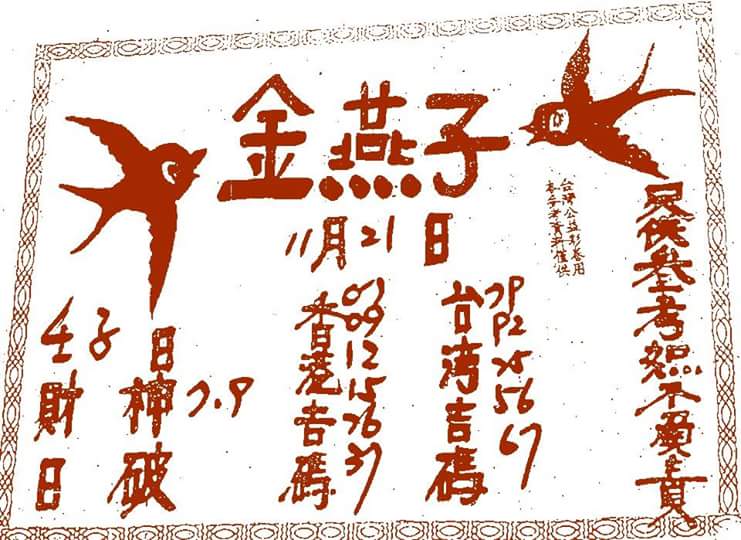 金燕子
11月21日
台灣公益彩卷用
本參考資料僅供
參考恕不負責
台湾吉碼
25
56
67
香港吉碼
09
12
15
26
37
壬子日
財神 7.9
日破